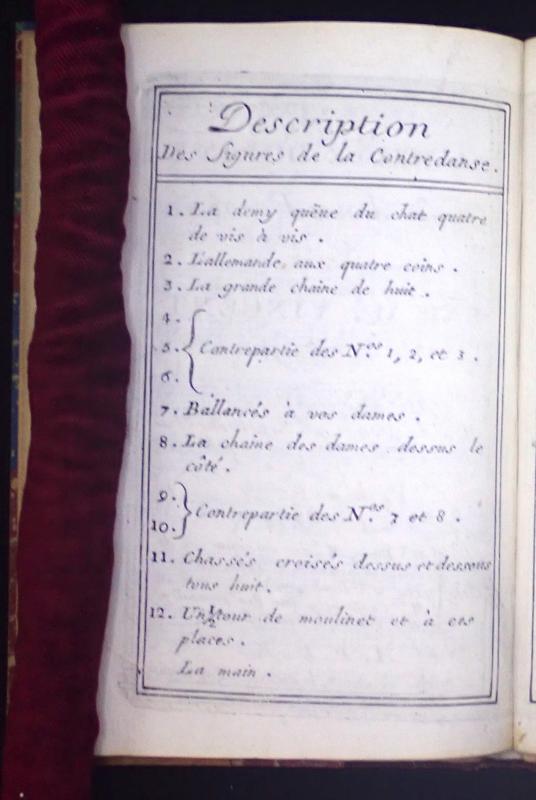 Description
Des figures de la Contredanse.
1. La demy queüe du chat quatre
de vis à vis.
2. L'allemande aux quatre coins.
3. La grande chaine de huit.
4.
5. Contrepartie des Nos. 1, 2, et 3.
6.
7. Ballancés à vos dames.
8. La chaine des dames dessus le
côté.
9.
Contrepartie des Nos. 7 et 8.
10.
11. Chassés croisés dessus et dessous
tous huit.
12. Un ½ tour de moulinet et à ces
places.
La main.